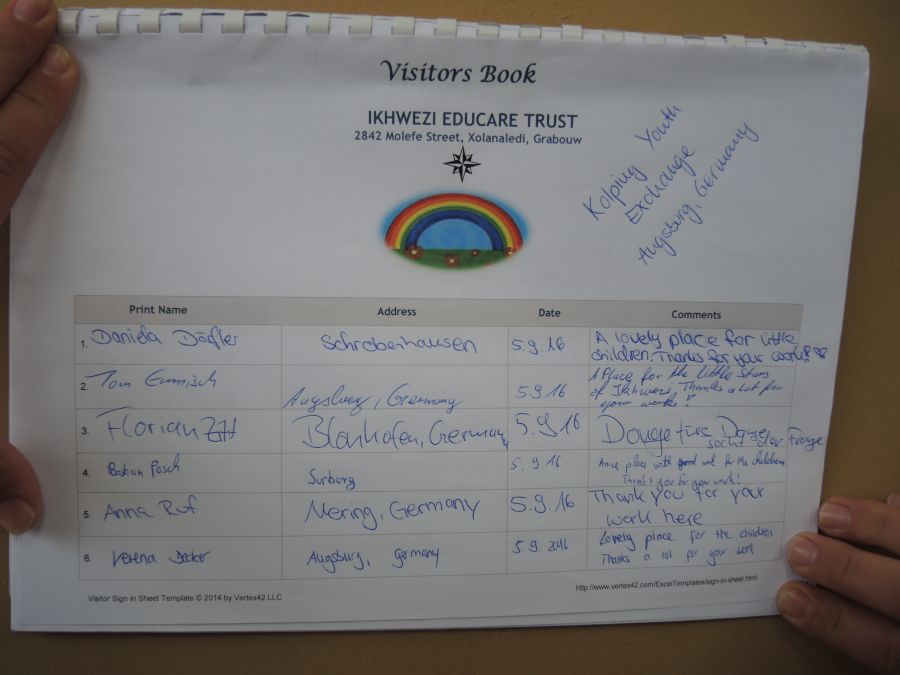 Visitors Book
IKHWEZI EDUCARE TRUST
2842 Molefe Street, Xolanaledi, Grabouw
Kolping Youth
Exchange
Augsburg, Germany
Print Name Address Date Comments
1. Daniela Dörfler Schrobenhausen 5.9.16 A lovely place for little
children. Thanks for your work!
2. Tom Augsburg, Germany 5.9.16 A Place for the little Stars
of Ikhwezi, Thanks a lot for
your works!
3. Florian Germany 5.9.16 Dauge
4. Bastian Posch 5.9.16 A nice place with good for the children
Thank you for your work!
5. Anna Ruf Mering, Germany 5.9.16. Thank you for your
work here
6. Verena Becker Augsburg, Germany 5.9.2016 Lovely place for the children
Thanks a lot for your work
Visitor Sign in Sheet Template © 2014 by Vertex42 LLC
http://www.vertex42.com/ExcelTemplates/sign-in-sheet.html